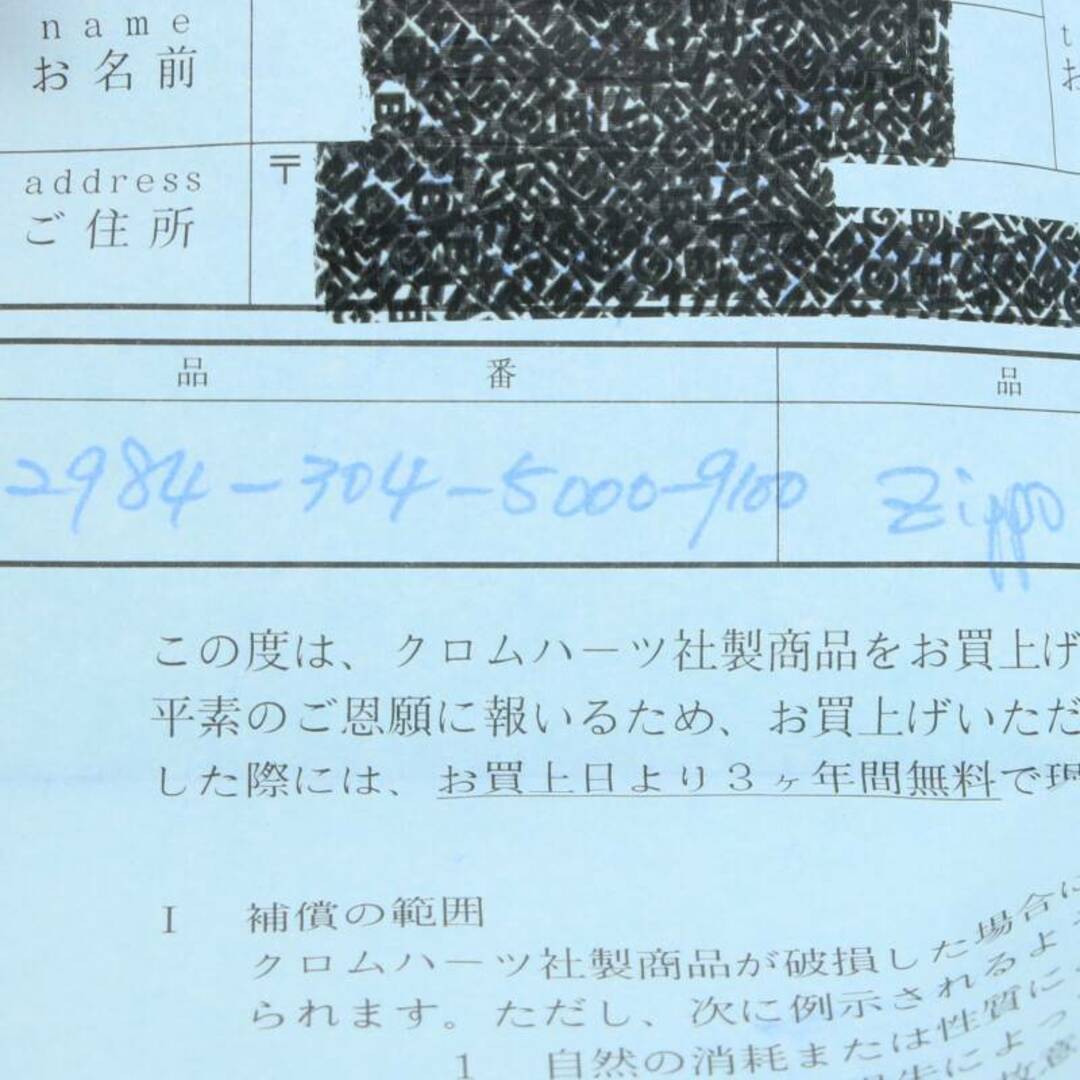 name
お名前
address
ご住所
〒
品番
品
2984-304-5000-9100
Zippo
この度は、クロムハーツ社製商品をお買上げ
平素のご恩願に報いるため、お買上げいただ
した際には、お買上日より3ヶ年間無料で現
I 補償の範囲
クロムハーツ社製商品が破損した場合に
られます。ただし、次に例示されるよ
1 自然の消耗または性質に